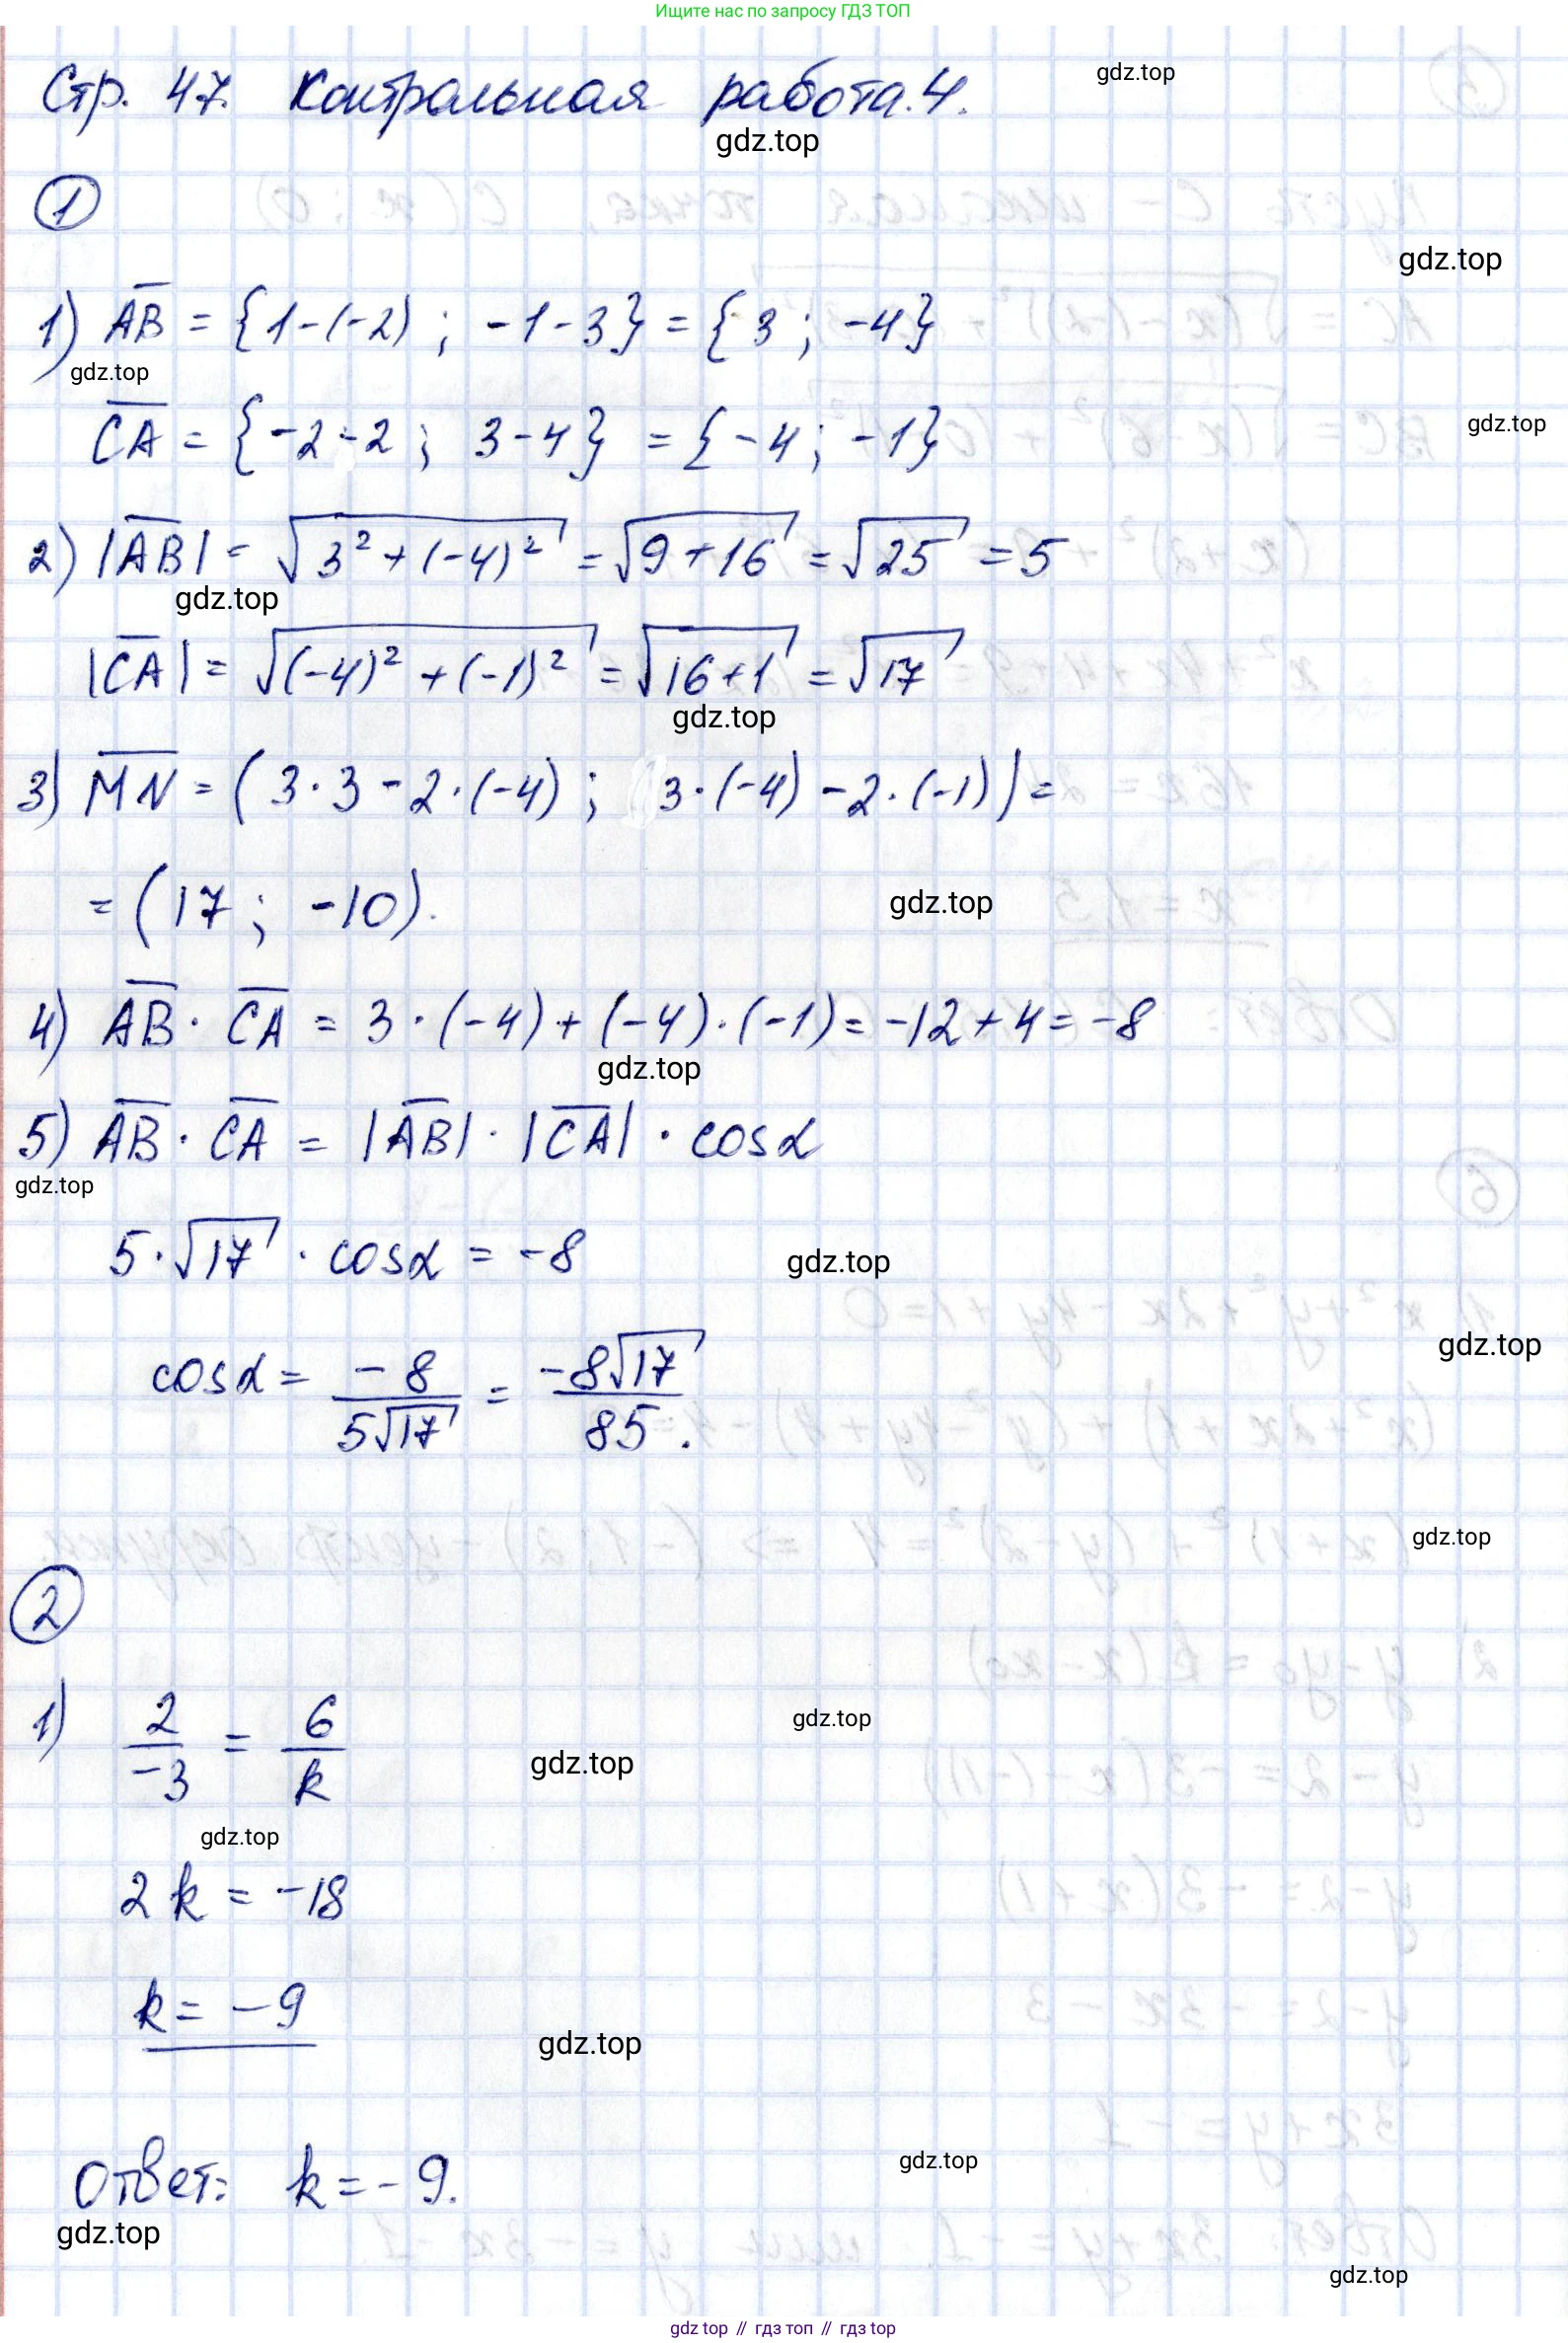 Ищите нас по запросу ГДЗ ТОП
Стр. 47. Контрольная работа.4.
gdz.top
gdz.top
1
gdz.top
1) AB = {1-(-2) ; -1-3} = {3 ; -4}
gdz.top
CA = {-2-2 ; 3-4} = {-4; -1}
gdz.top
2) |AB| = √3² + (-4)² = √9+16 = √25 = 5
gdz.top
|CA| = √(-4)² + (-1)² = √16+1 = √17
gdz.top
3) MN = (3·3 - 2·(-4) ; 3·(-4) - 2·(-1)) =
= (17 ; -10).
gdz.top
4) AB · CA = 3·(-4) + (-4)·(-1) = -12 + 4 = -8
gdz.top
5) AB · CA = |AB| · |CA| · cosα
gdz.top
5·√17 · cosα = -8
gdz.top
gdz.top
cosα = -8/5√17 = -8√17/85.
gdz.top
2
1) 2/-3 = 6/k
gdz.top
gdz.top
gdz.top
2k = -18
k = -9
gdz.top
Ответ: k = -9.
gdz.top
gdz.top
gdz.top
gdz.top // гдз топ // гдз.top